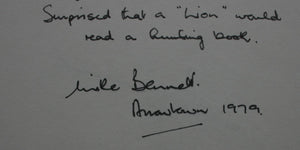 Surprised that a "Lion" would
read a hunting book.
Mike Bennett.
Arrowtown 1979.